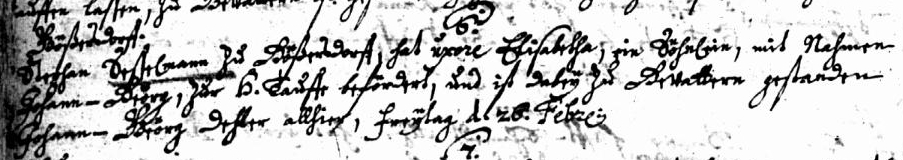 tauffen lassen, zu Gevattern
6.
Gößersdorff.
Stephan Sesselmann zu Gößersdorff, hat uxore Elisabetha, ein Söhnlein, mit Nahmen
Johann-Georg, zur H. Tauffe befördert, und ist dabey zu Gevattern gestanden
Johann-Georg allhier, Freytag d. 26. Febr:
7.